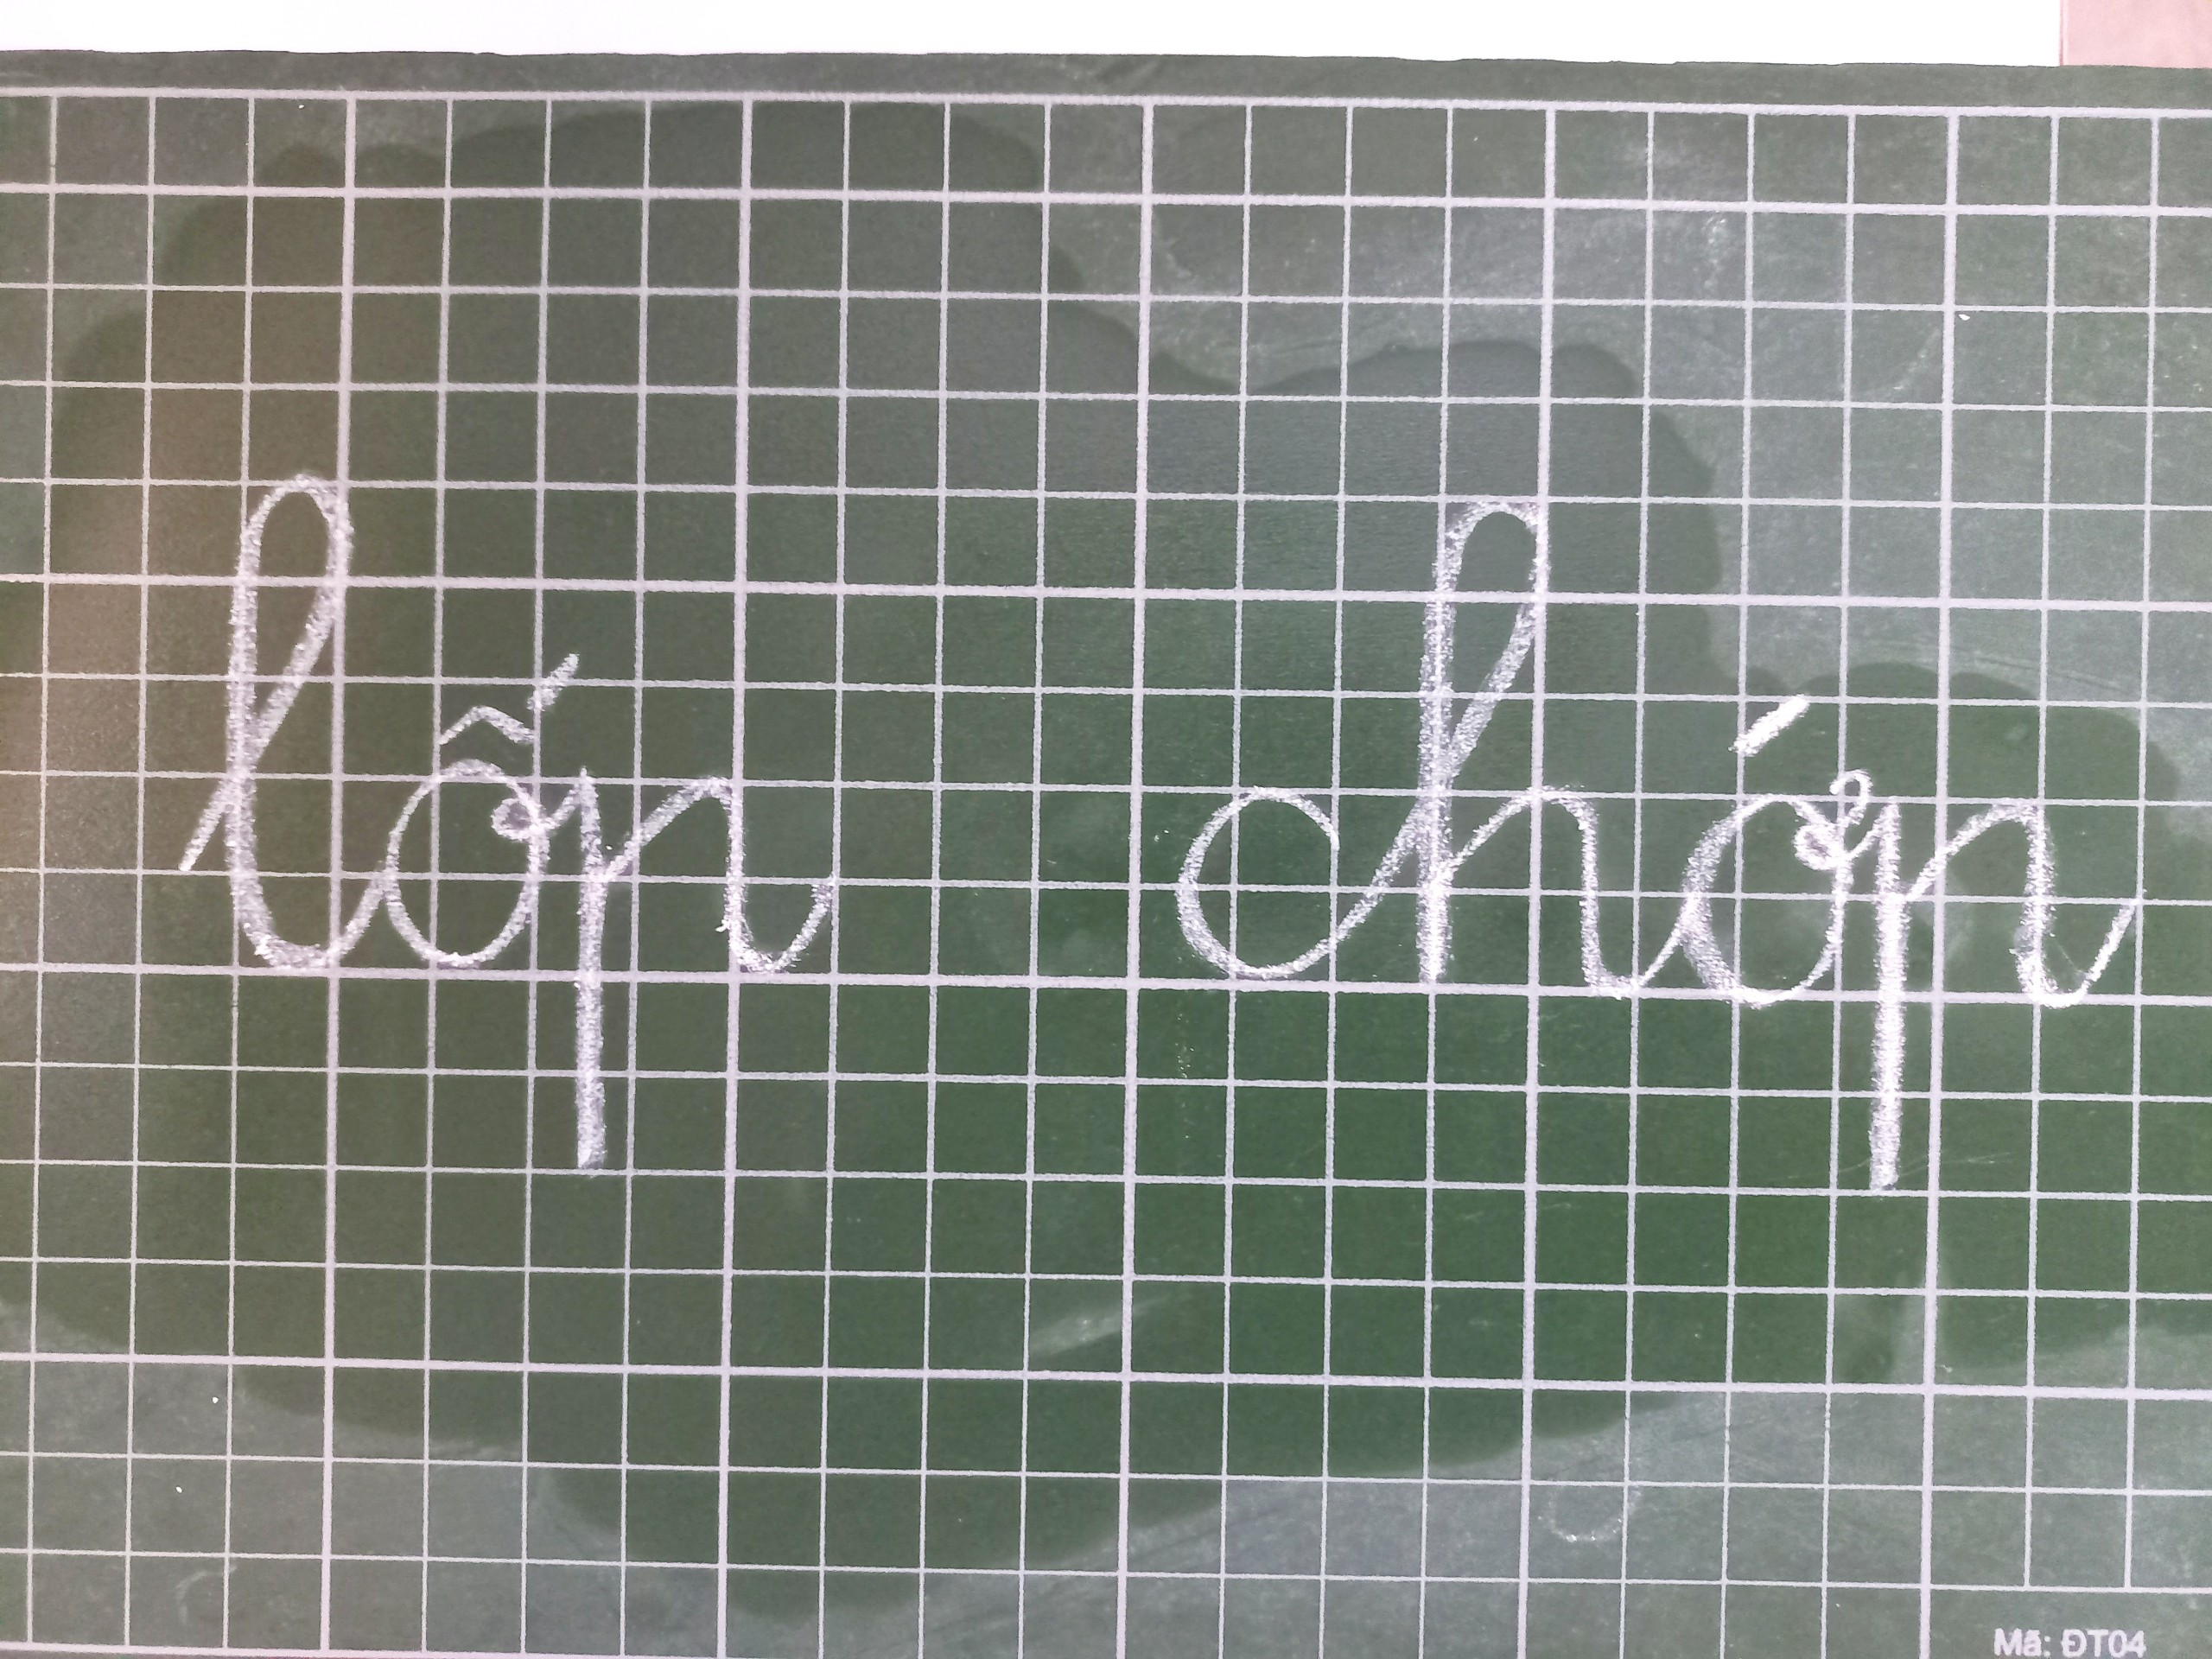 lốp chớp
Mã: ĐT04